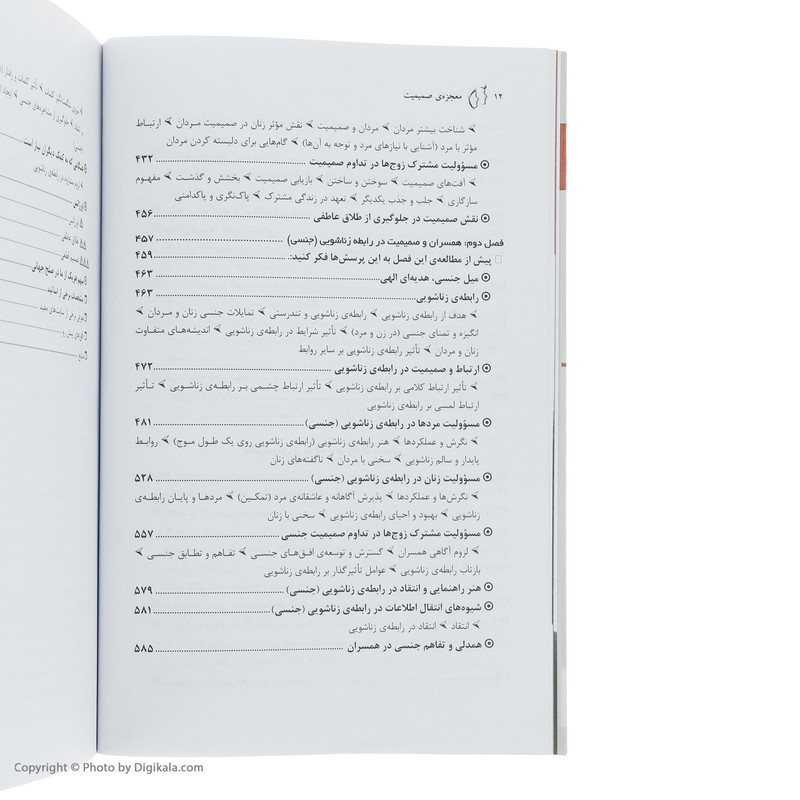 ۱۲ معجزه‌ی صمیمیت
شناخت بیشتر مردان ➤ مردان و صمیمیت ➤ نقش مؤثر زنان در صمیمیت مـردان ➤ ارتبـاط
مؤثر با مرد (آشنایی با نیازهای مرد و توجه به آن‌ها) ➤ گام‌هایی برای دلبسته کردن مردان
مسؤولیت مشترک زوج‌ها در تداوم صمیمیت ........ ۴۳۲
آفت‌های صمیمیت ➤ سوختن و ساختن ➤ بازیابی صمیمیت ➤ بخشش و گذشـت ➤ مفهـوم
سازگاری ➤ جلب و جذب یکدیگر ➤ تعهد در زندگی مشترک ➤ پاک‌نگری و پاکدامنی
نقش صمیمیت در جلوگیری از طلاق عاطفی ........ ۴۵۶
فصل دوم: همسران و صمیمیت در رابطه زناشویی (جنسی) ........ ۴۵۷
پیش از مطالعه‌ی این فصل به این پرسش‌ها فکر کنید: ........ ۴۵۹
میل جنسی، هدیه‌ای الهی ........ ۴۶۳
رابطه‌ی زناشویی ........ ۴۶۳
هدف از رابطه‌ی زناشویی ➤ رابطه‌ی زناشویی و تندرستی ➤ تمایلات جنسی زنان و مـردان ➤
انگیزه و تمنای جنسی (در زن و مرد) ➤ تأثیر شرایط در رابطه‌ی زناشویی ➤ اندیشه‌هـای متفـاوت
زنان و مردان ➤ تأثیر رابطه‌ی زناشویی بر سایر روابط
ارتباط و صمیمیت در رابطه‌ی زناشویی ........ ۴۷۲
تأثیر ارتباط کلامی بر رابطه‌ی زناشویی ➤ تأثیر ارتباط چشـمی بـر رابطـه‌ی زناشـویی ➤ تـأثیر
ارتباط لمسی بر رابطه‌ی زناشویی
مسؤولیت مردها در رابطه‌ی زناشویی (جنسی) ........ ۴۸۱
نگرش و عملکردها ➤ هنر رابطه‌ی زناشویی (رابطه‌ی زناشویی روی یک طـول مـوج) ➤ روابـط
پایدار و سالم زناشویی ➤ سخنی با مردان ➤ ناگفته‌های زنان
مسؤولیت زنان در رابطه‌ی زناشویی (جنسی) ........ ۵۲۸
نگرش‌ها و عملکردها ➤ پذیرش آگاهانه و عاشقانه‌ی مرد (تمکـین) ➤ مردهـا و پایـان رابطـه‌ی
زناشویی ➤ بهبود و احیای رابطه‌ی زناشویی ➤ سخنی با زنان
مسؤولیت مشترک زوج‌ها در تداوم صمیمیت جنسی ........ ۵۵۷
لزوم آگاهی همسران ➤ گسترش و توسعه‌ی افق‌هـای جنسـی ➤ تفـاهم و تطـابق جنسـی ➤
بازتاب رابطه‌ی زناشویی ➤ عوامل تأثیرگذار بر رابطه‌ی زناشویی
هنر راهنمایی و انتقاد در رابطه‌ی زناشویی (جنسی) ........ ۵۷۹
شیوه‌های انتقال اطلاعات در رابطه‌ی زناشویی (جنسی) ........ ۵۸۱
انتقاد ➤ انتقاد در رابطه‌ی زناشویی
همدلی و تفاهم جنسی در همسران ........ ۵۸۵
Copyright © Photo by Digikala.com